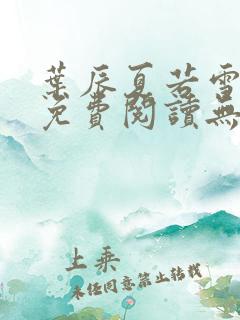 葉辰夏若雪
免費閱讀無
上乘
未經同意禁止轉載